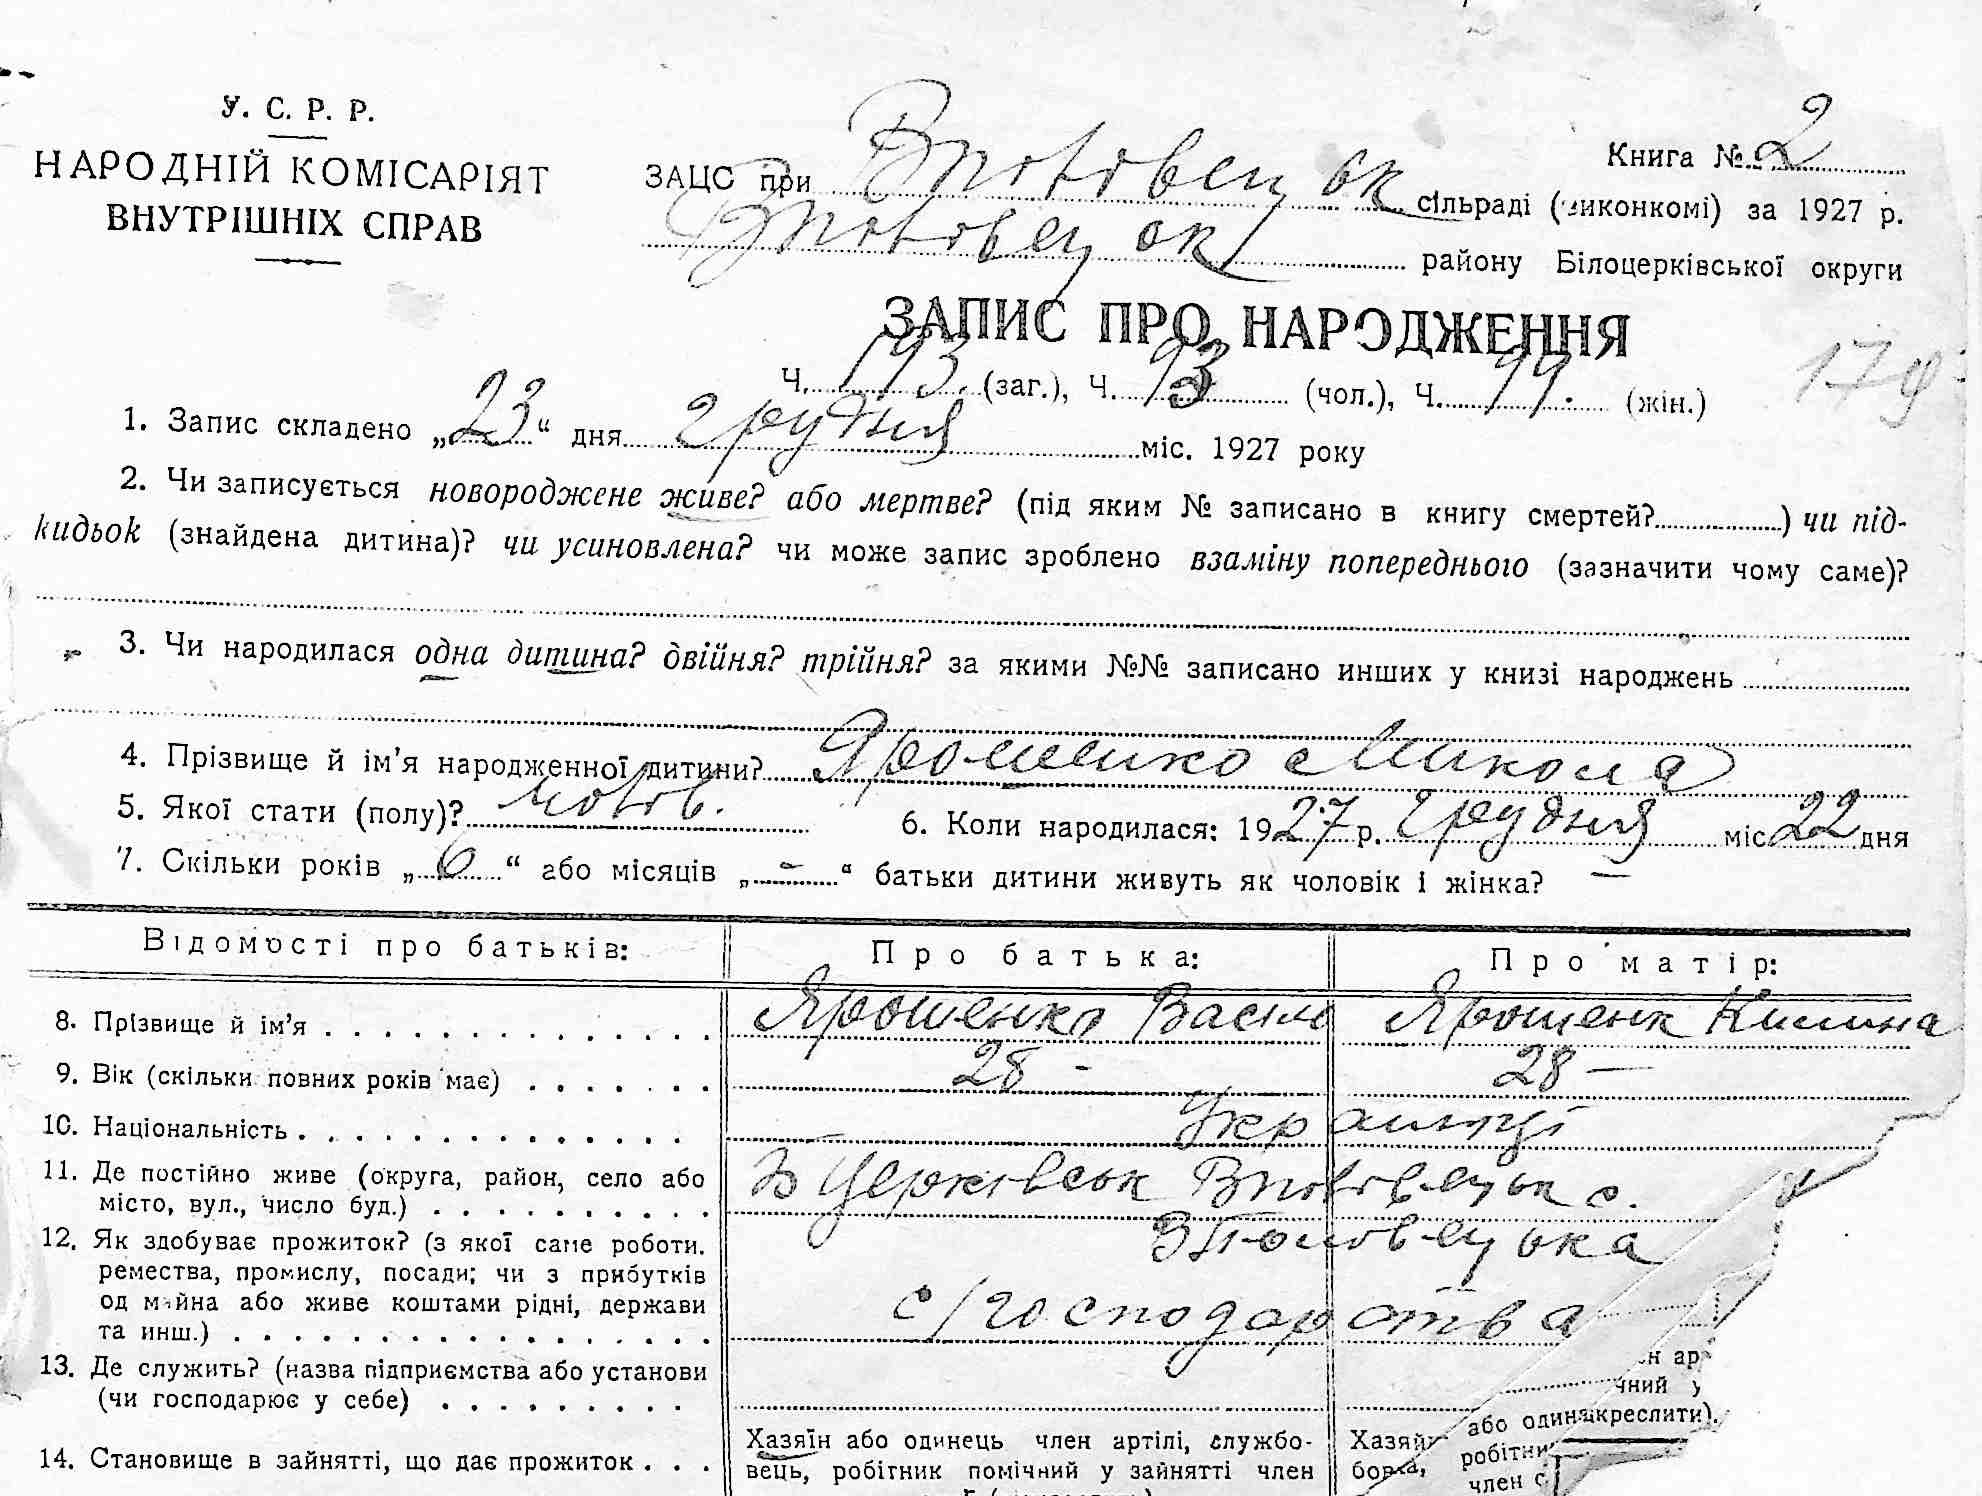 У. С. Р. Р.
НАРОДНІЙ КОМІСАРІЯТ
ВНУТРІШНІХ СПРАВ
Книга № 2
ЗАЦС при Вполовецьк сільраді (виконкомі) за 1927 р.
Вполовецьк району Білоцерківської округи
ЗАПИС ПРО НАРОДЖЕННЯ
Ч. 193. (заг.), Ч. 93 (чол.), Ч. 99. (жін.)
179
1. Запис складено „23“ дня грудня міс. 1927 року
2. Чи записується новороджене живе? або мертве? (під яким № записано в книгу смертей?) чи під-
кидьок (знайдена дитина)? чи усиновлена? чи може запис зроблено взаміну попереднього (зазначити чому саме)?
3. Чи народилася одна дитина? двійня? трійня? за якими №№ записано инших у книзі народжень
4. Прізвище й ім’я народженної дитини? Ярошенко Микола
5. Якої стати (полу)? чолов. 6. Коли народилася: 1927 р. грудня міс 22 дня
7. Скільки років „6“ або місяців „–“ батьки дитини живуть як чоловік і жінка? —
Відомості про батьків: Про батька: Про матір:
8. Прізвище й ім’я Ярошенко Василь Ярошенк Килина
9. Вік (скільки повних років має) 28 - 28 —
10. Національність Українці
11. Де постійно живе (округа, район, село або
місто, вул., число буд.) Б Церківськ Вполовецьк с.
ВПоловецька
12. Як здобуває прожиток? (з якої саме роботи.
ремества, промислу, посади; чи з прибутків
од майна або живе коштами рідні, держави
та инш.) с/господарства
13. Де служить? (назва підприємства або установи
(чи господарює у себе)
14. Становище в зайнятті, що дає прожиток
Хазяїн або одинець член артілі, службо-
вець, робітник помічний у зайнятті член
Хазяй
або один
робітни
член с